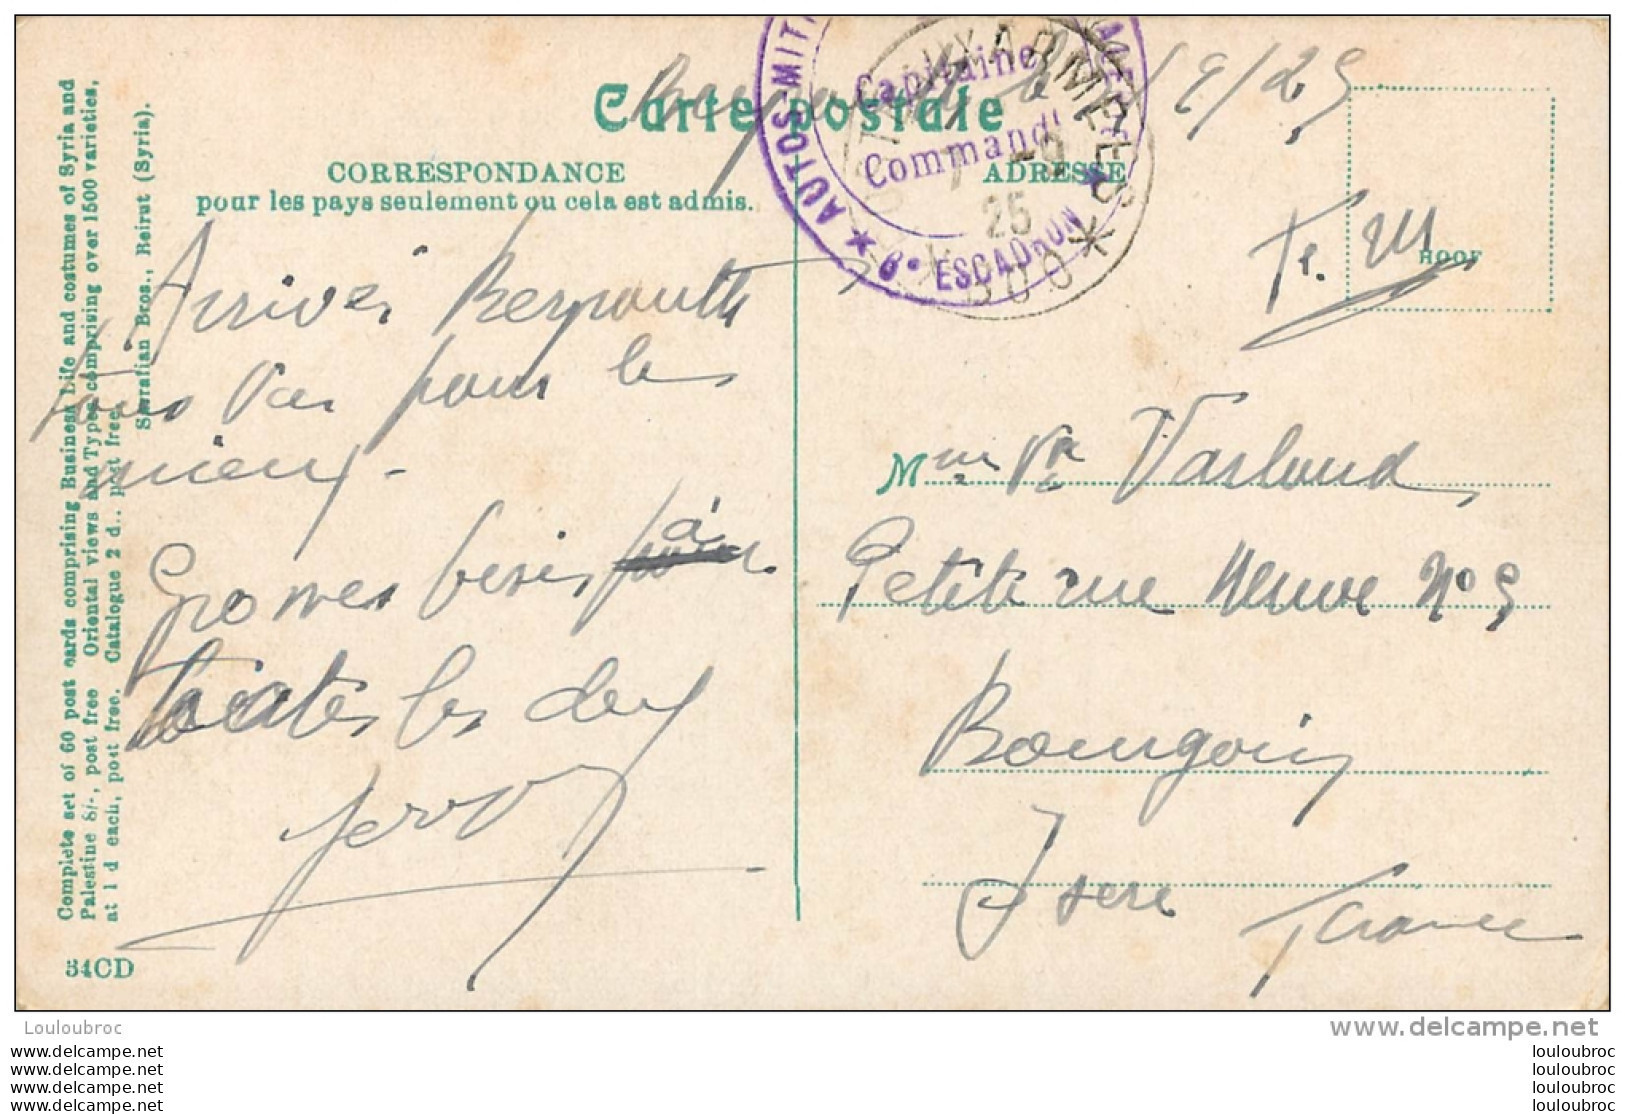 Carte postale
CORRESPONDANCE
pour les pays seulement ou cela est admis.
ADRESSE
AUTOS MIT
Capitaine
Command
8e ESCADRON
POSTES AUX ARMEES
25
600
/9/25
F. M
Arrivés Beyrouth
tous va pour les
mieux -
Grosses bises à
toutes les deux
Mme Vve Varloud
Petite rue Neuve No 9
Bourgoin
Isere France
Complete set of 60 post cards comprising Business Life and costumes of Syria and
Palestine 8/-, post free Oriental views and Types comprising over 1500 varieties,
at 1 d each, post free. Catalogue 2 d., post free.
Sarrafian Bros., Beirut (Syria).
34CD
Louloubroc
www.delcampe.net
www.delcampe.net
www.delcampe.net
www.delcampe.net
www.delcampe.net
louloubroc
louloubroc
louloubroc
louloubroc